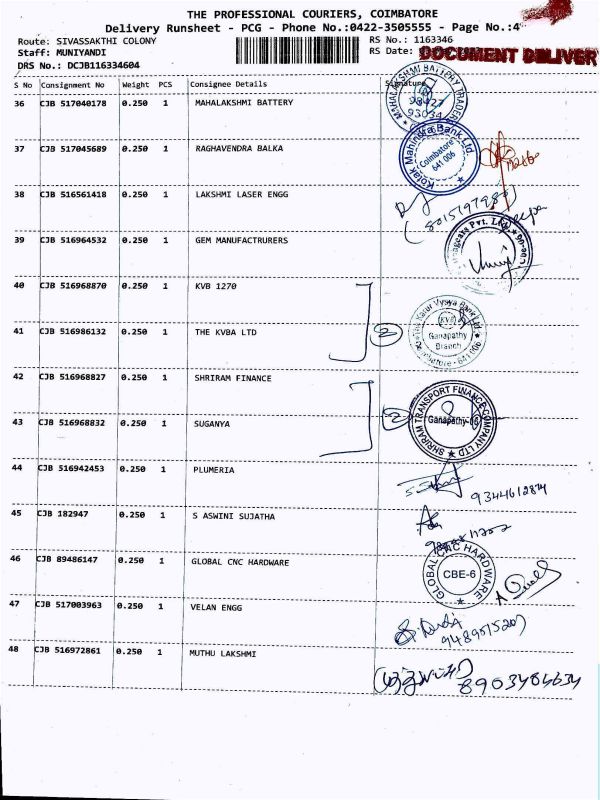 THE PROFESSIONAL COURIERS, COIMBATORE
Delivery Runsheet - PCG - Phone No.:0422-3505555 - Page No.:4
Route: SIVASSAKTHI COLONY RS No.: 1163346
Staff: MUNIYANDI RS Date: DOCUMENT DELIVER
DRS No.: DCJB116334604
S No Consignment No Weight PCS Consignee Details Signature
36 CJB 517040178 0.250 1 MAHALAKSHMI BATTERY
MAHALAKSHMI BATTERY TRADERS
37 CJB 517045689 0.250 1 RAGHAVENDRA BALKA
Kotak Mahindra Bank Ltd. Coimbatore 641 006
38 CJB 516561418 0.250 1 LAKSHMI LASER ENGG
39 CJB 516964532 0.250 1 GEM MANUFACTRURERS
Pvt. Ltd.
40 CJB 516968870 0.250 1 KVB 1270
41 CJB 516986132 0.250 1 THE KVBA LTD 2
The Karur Vysya Bank Ltd KVB Ganapathy Branch Coimbatore - 641 006
42 CJB 516968827 0.250 1 SHRIRAM FINANCE
43 CJB 516968832 0.250 1 SUGANYA 2
SHRIRAM TRANSPORT FINANCE COMPANY LTD Ganapathy-06
44 CJB 516942453 0.250 1 PLUMERIA
45 CJB 182947 0.250 1 S ASWINI SUJATHA
46 CJB 89486147 0.250 1 GLOBAL CNC HARDWARE
GLOBAL CNC HARDWARE CBE-6
47 CJB 517003963 0.250 1 VELAN ENGG
9489515207
48 CJB 516972861 0.250 1 MUTHU LAKSHMI
8903484634